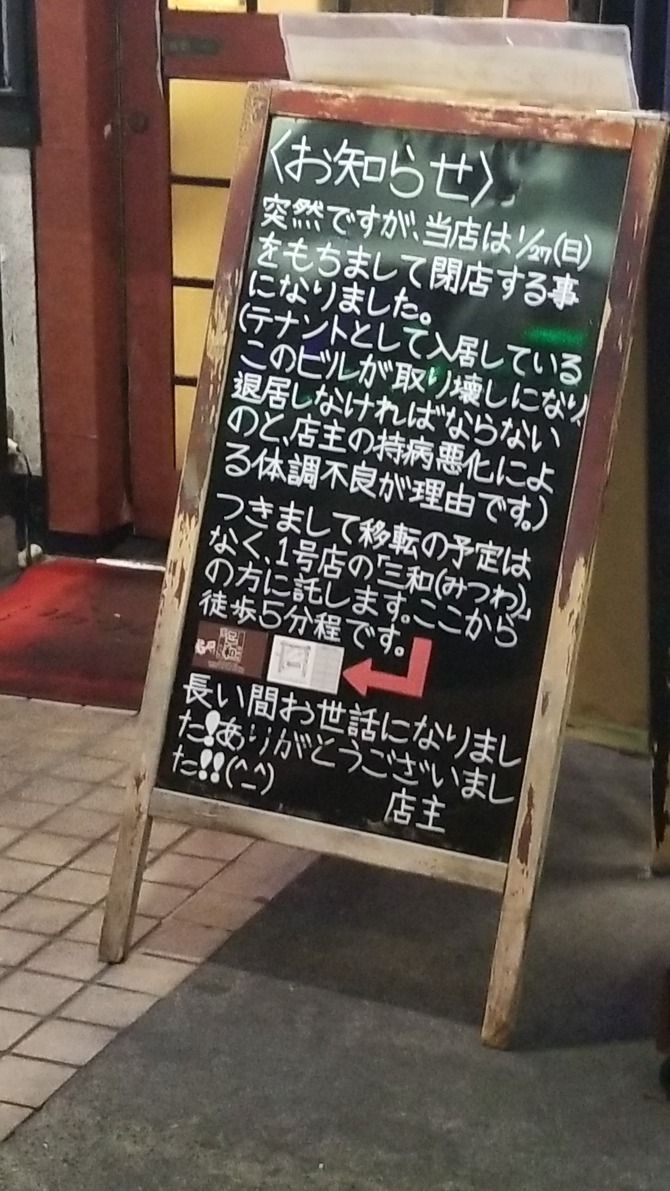 〈お知らせ〉
突然ですが、当店は1/27(日)
をもちまして閉店する事
になりました。
(テナントとして入居している
このビルが取り壊しになり
退居しなければならない
のと、店主の持病悪化によ
る体調不良が理由です。)
つきまして移転の予定は
なく、1号店の「三和(みつわ)」
の方に託します。ここから
徒歩5分程です。
長い間お世話になりまし
た!ありがとうございまし
た!!(^_^)
店主